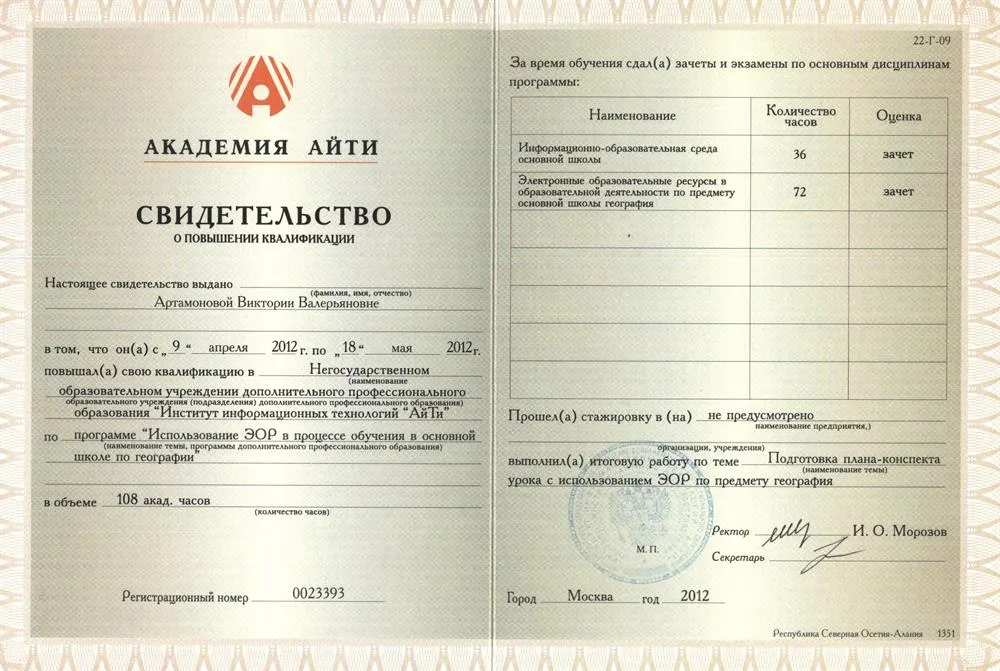 АКАДЕМИЯ АЙТИ
СВИДЕТЕЛЬСТВО
О ПОВЫШЕНИИ КВАЛИФИКАЦИИ
Настоящее свидетельство выдано
(фамилия, имя, отчество)
Артамоновой Виктории Валерьяновне
в том, что он(а) с „ 9 “ апреля 2012 г. по „ 18 “ мая 2012 г.
повышал(а) свою квалификацию в Негосударственном
(наименование
образовательном учреждении дополнительного профессионального
образовательного учреждения (подразделения) дополнительного профессионального образования)
образования "Институт информационных технологий "АйТи"
по программе "Использование ЭОР в процессе обучения в основной
(наименование темы, программы дополнительного профессионального образования)
школе по географии"
в объеме 108 акад. часов
(количество часов)
Регистрационный номер 0023393
22-Г-09
За время обучения сдал(а) зачеты и экзамены по основным дисциплинам
программы:
Наименование Количество часов Оценка
Информационно-образовательная среда
основной школы 36 зачет
Электронные образовательные ресурсы в
образовательной деятельности по предмету 72 зачет
основной школы география
Прошел(а) стажировку в (на) не предусмотрено
наименование предприятия,)
организации, учреждения)
выполнил(а) итоговую работу по теме Подготовка плана-конспекта
(наименование темы)
урока с использованием ЭОР по предмету география
Ректор И. О. Морозов
М. П.
Секретарь
Город Москва год 2012
Республика Северная Осетия-Алания 1351